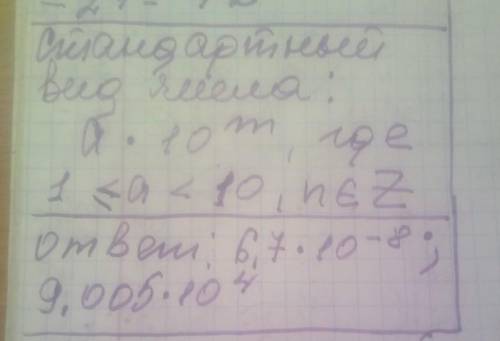 стандартный
вид числа:
a · 10^m, где
1 ≤ a < 10, n ∈ Z
ответ: 6,7 · 10^-8;
9,005 · 10^4